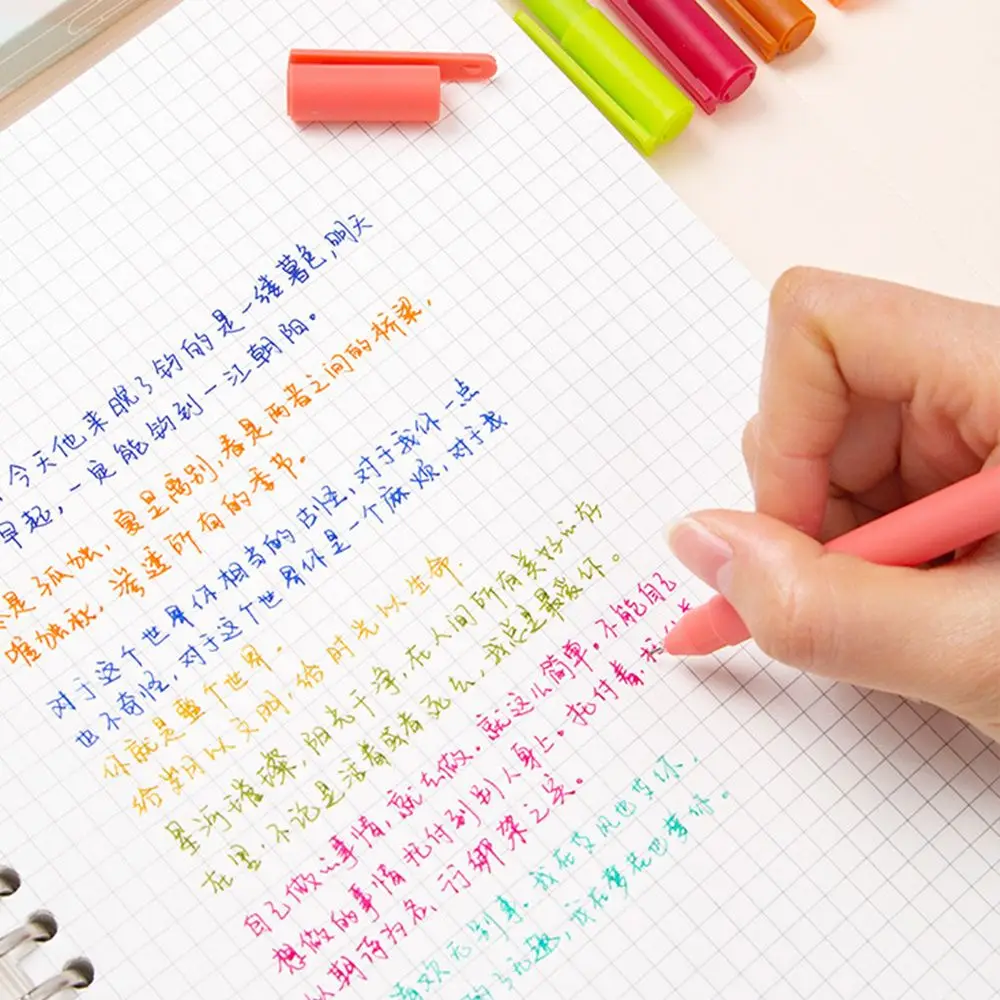 今天他来晚了钓的是一缕暮色,明天
早起,一定能钓到一江朝阳。
是孤独,夏是离别,春是两者之间的桥梁,
唯独秋,渗透所有的季节。
对于这个世界你相当的古怪,对于我你一点
也不奇怪,对于这个世界你是一个麻烦,对于我
你就是整个世界.
给岁月以文明,给时光以生命.
星河璀璨,阳光干净,在人间所有美好的存
在里,不论是活着或者死去,我总是最爱你。
自己做的事情,就去做.就这么简单.不能自己
想做的事情托付到别人身上.托付着,
以期待为名,行绑架之实。
喜欢无别事、我在及风也莫怀,
的了无趣,我在梦花巴黎你.